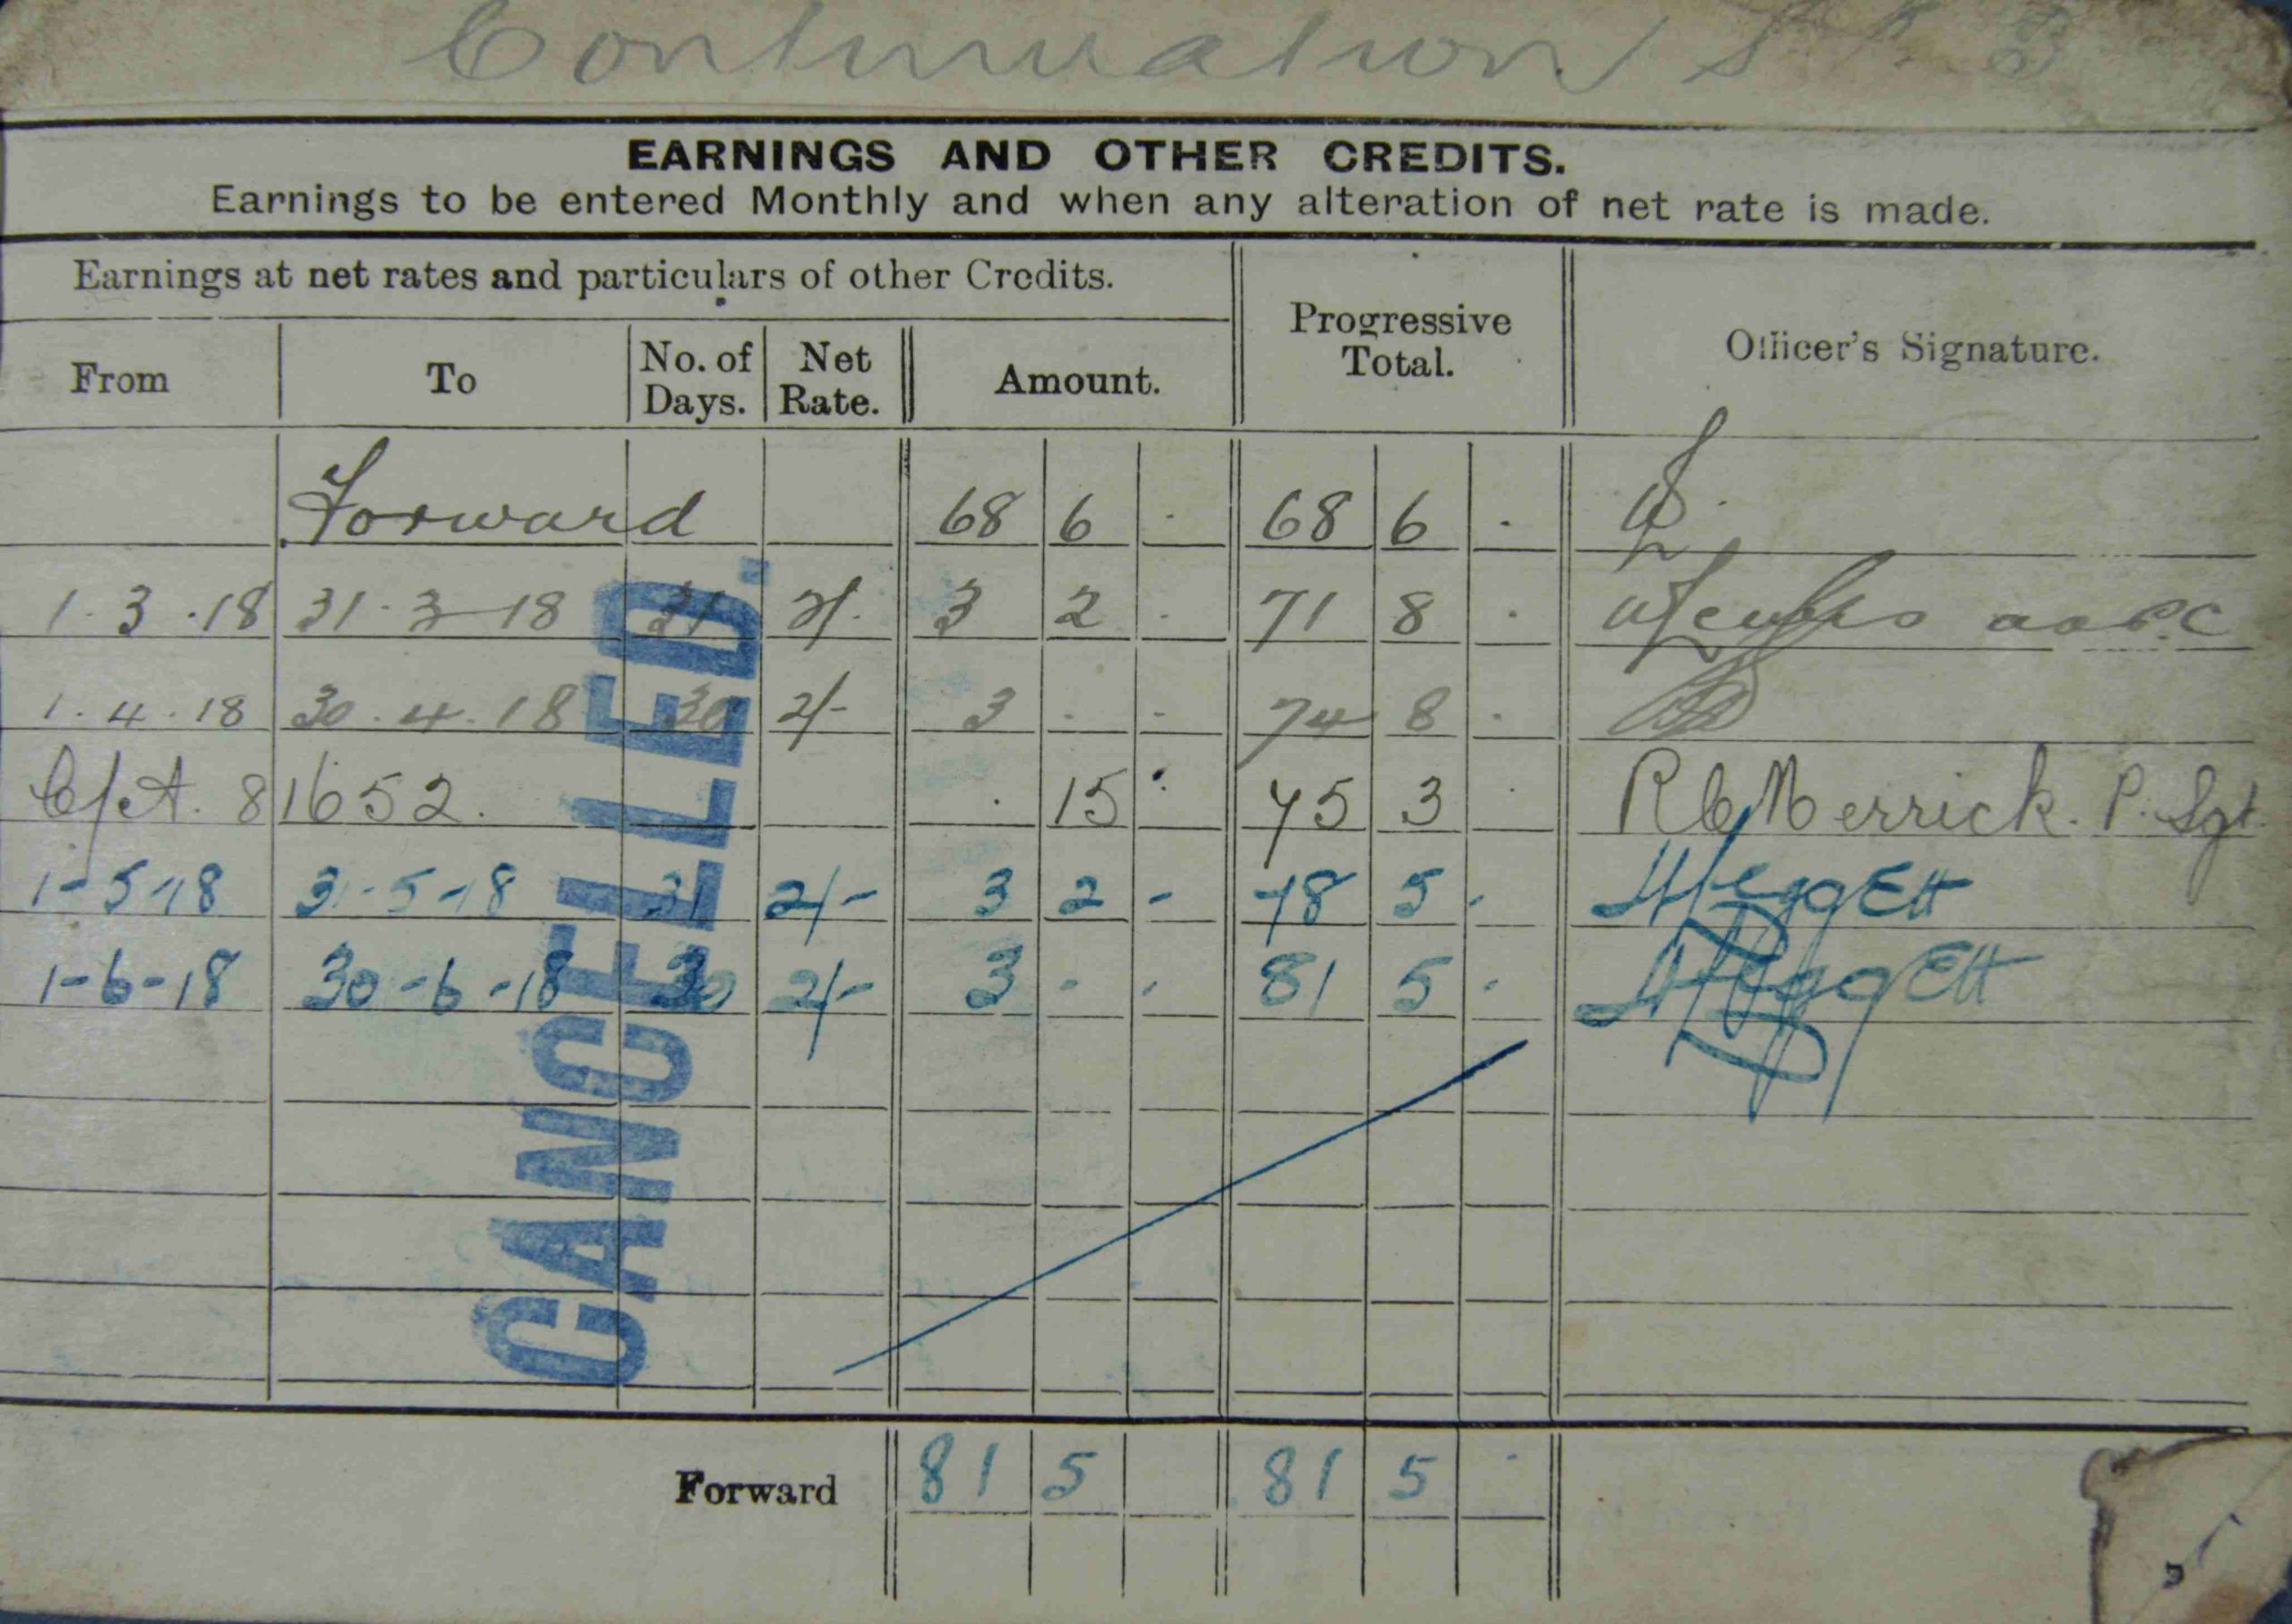 Continuation
EARNINGS AND OTHER CREDITS.
Earnings to be entered Monthly and when any alteration of net rate is made.
Earnings at net rates and particulars of other Credits.
From To No. of Days. Net Rate. Amount. Progressive Total. Officer's Signature.
Forward 68 6 . 68 6 .
1.3.18 31.3-18 31 2/. 3 2 . 71 8 . aapc
1.4.18 30.4.18 30 2/- 3 . - 74 8 .
C/A. 81652. . 15 . 75 3 . R C Merrick. P. Sgt.
1-5-18 31-5-18 31 2/- 3 2 - 78 5 .
1-6-18 30-6-18 30 2/- 3 - . 81 5 .
CANCELLED.
Forward 81 5 81 5 .